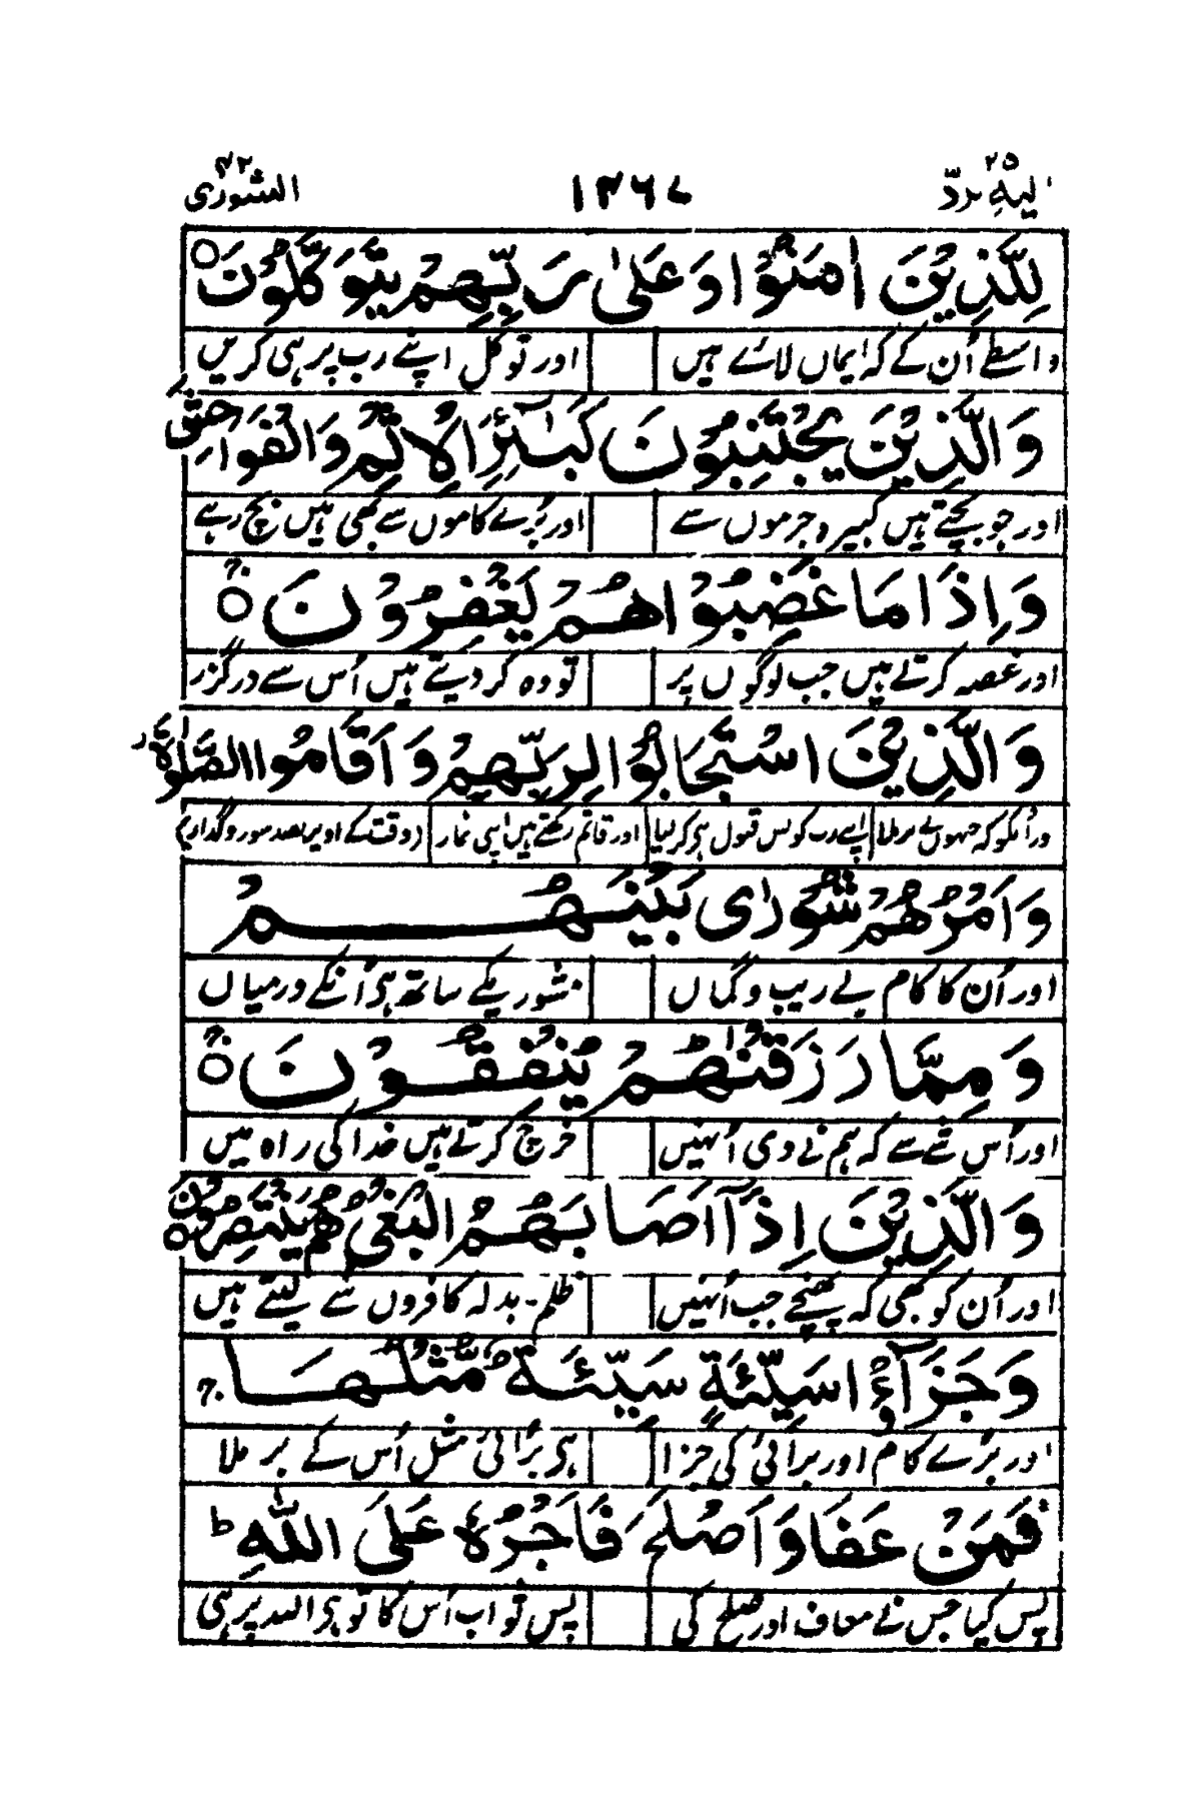 الیہ یردّ ۲۵ ۱۴۶۷ الشوریٰ ۴۲
لِلَّذِیْنَ اٰمَنُوْا وَعَلٰی رَبِّهِمْ یَتَوَكَّلُوْنَ ○
واسطے اُن کے کہ ایماں لائے ہیں اور توکل اپنے رب پر ہی کریں
وَالَّذِیْنَ یَجْتَنِبُوْنَ كَبٰٓئِرَ الْاِثْمِ وَالْفَوَاحِشَ
اور جو بچتے ہیں کبیرہ جرموں سے اور بُرے کاموں سے بھی ہیں بچ رہے
وَاِذَا مَا غَضِبُوْا هُمْ یَغْفِرُوْنَ ○
اور غصہ کرتے ہیں جب لوگوں پر تو وہ کر دیتے ہیں اُس سے درگزر
وَالَّذِیْنَ اسْتَجَابُوْا لِرَبِّهِمْ وَاَقَامُوا الصَّلٰوةَ
اور اُنکو کہ جنہوں نے برملا اپنے رب کو بس قبول ہی کر لیا اور قائم رکھتے ہیں اپنی نماز (وقت کے اوپر بصد سوز و گداز)
وَاَمْرُهُمْ شُوْرٰی بَیْنَهُمْ
اور اُن کا کام بے ریب و گماں مشورے کے ساتھ ہے اُنکے درمیاں
وَمِمَّا رَزَقْنٰهُمْ یُنْفِقُوْنَ ○
اور اُس شے سے کہ ہم نے دی اُنہیں خرچ کرتے ہیں خدا کی راہ میں
وَالَّذِیْنَ اِذَآ اَصَابَهُمُ الْبَغْیُ هُمْ یَنْتَصِرُوْنَ ○
اور اُن کو بھی کہ پہنچے جب اُنہیں ظلم ۔ بدلہ کافروں سے لیتے ہیں
وَجَزٰٓؤُا سَیِّئَةٍ سَیِّئَةٌ مِّثْلُهَا
اور بُرے کام اور برائی کی جزا ہے بُرائی مثل اُس کے بر ملا
فَمَنْ عَفَا وَاَصْلَحَ فَاَجْرُهٗ عَلَی اللّٰهِ ط
پس کیا جس نے معاف اور صلح کی پس تو اب اُس کا تو ہے اللہ پر ہی